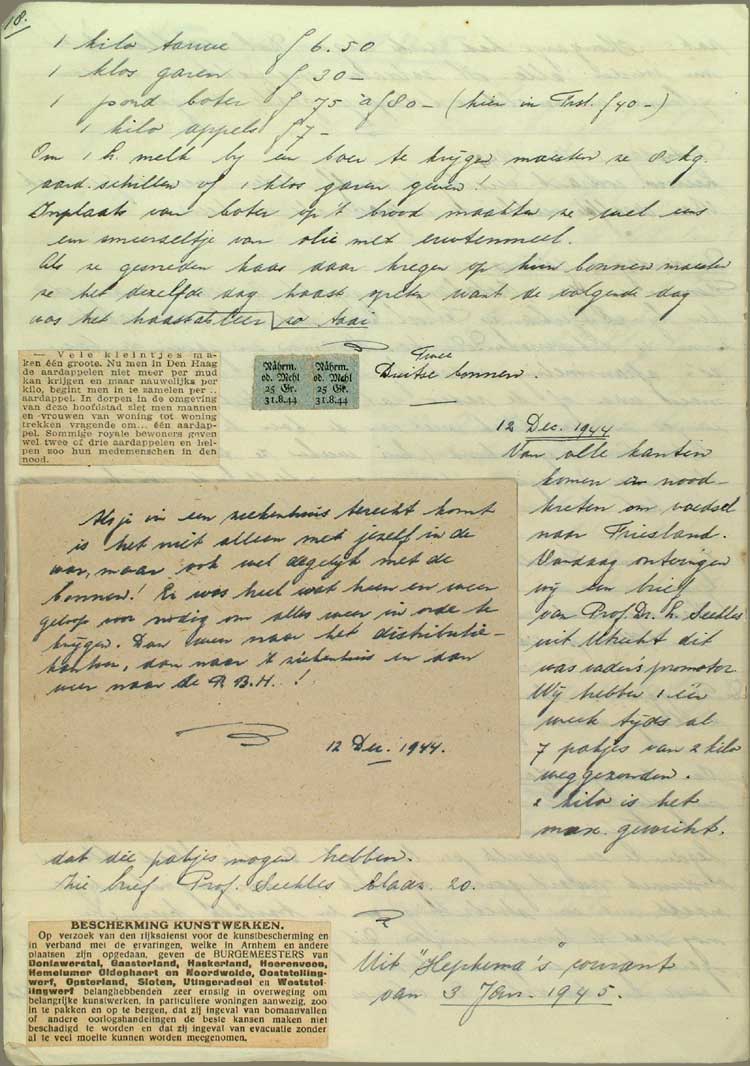 18.
1 kilo tarwe f 6.50
1 klos garen f 30 –
1 pond boter f 75 à f 80 – (hier in Frsl. f 40 –)
1 kilo appels f 7 –
Om 1 l. melk bij een boer te krijgen moesten ze 8 kg.
aard. schillen of 1 klos garen geven!
Inplaats van boter op 't brood maakten ze wel eens
een smeerseltje van olie met erwtenmeel.
Als ze gesneden kaas daar kregen op hun bonnen moesten
ze het dezelfde dag haast opeten want de volgende dag
was het haast leer zo taai
— Vele kleintjes ma-
ken één groote. Nu men in Den Haag
de aardappelen niet meer per mud
kan krijgen en maar nauwelijks per
kilo, begint men in te zamelen per ..
aardappel. In dorpen in de omgeving
van deze hoofdstad ziet men mannen
en vrouwen van woning tot woning
trekken vragende om... één aardap-
pel. Sommige royale bewoners geven
wel twee of drie aardappelen en hel-
pen zoo hun medemenschen in den
nood.
Nährm. Nährm.
od. Mehl od. Mehl
25 Gr. 25 Gr.
31.8.44 31.8.44
Twee
Duitse bonnen.
12 Dec. 1944
Van alle kanten
komen nood-
kreten om voedsel
naar Friesland.
Vandaag ontvingen
wij een brief
van Prof. Dr. L. Seekles
uit Utrecht dit
was vaders promotor
Wij hebben 1 éér
week tijds al
7 pakjes van 2 kilo
weggezonden.
2 kilo is het
max. gewicht.
dat die pakjes mogen hebben.
Zie brief Prof. Seekles bladz. 20.
Als je in een ziekenhuis terecht komt
is het niet alleen met jezelf in de
war, maar ook wel degelijk met de
bonnen! Er was heel wat heen en weer
geloop voor nodig om alles weer in orde te
krijgen. Dan weer naar het distributie-
kantoor, dan naar 't ziekenhuis en dan
weer naar de R.B.H. !
12 Dec. 1944.
BESCHERMING KUNSTWERKEN.
Op verzoek van den rijksdienst voor de kunstbescherming en
in verband met de ervaringen, welke in Arnhem en andere
plaatsen zijn opgedaan, geven de BURGEMEESTERS van
Doniawerstal, Gaasterland, Haskerland, Heerenveen,
Hemelumer Oldephaert en Noordwolde, Ooststelling-
werf, Opsterland, Sloten, Utingeradeel en Weststel-
lingwerf belanghebbenden zeer ernstig in overweging om
belangrijke kunstwerken, in particuliere woningen aanwezig, zoo
in te pakken en op te bergen, dat zij ingeval van bomaanvallen
of andere oorlogshandelingen de beste kansen maken niet
beschadigd te worden en dat zij ingeval van evacuatie zonder
al te veel moeite kunnen worden meegenomen.
Uit "Hepkema's" courant
van 3 Jan. 1945.